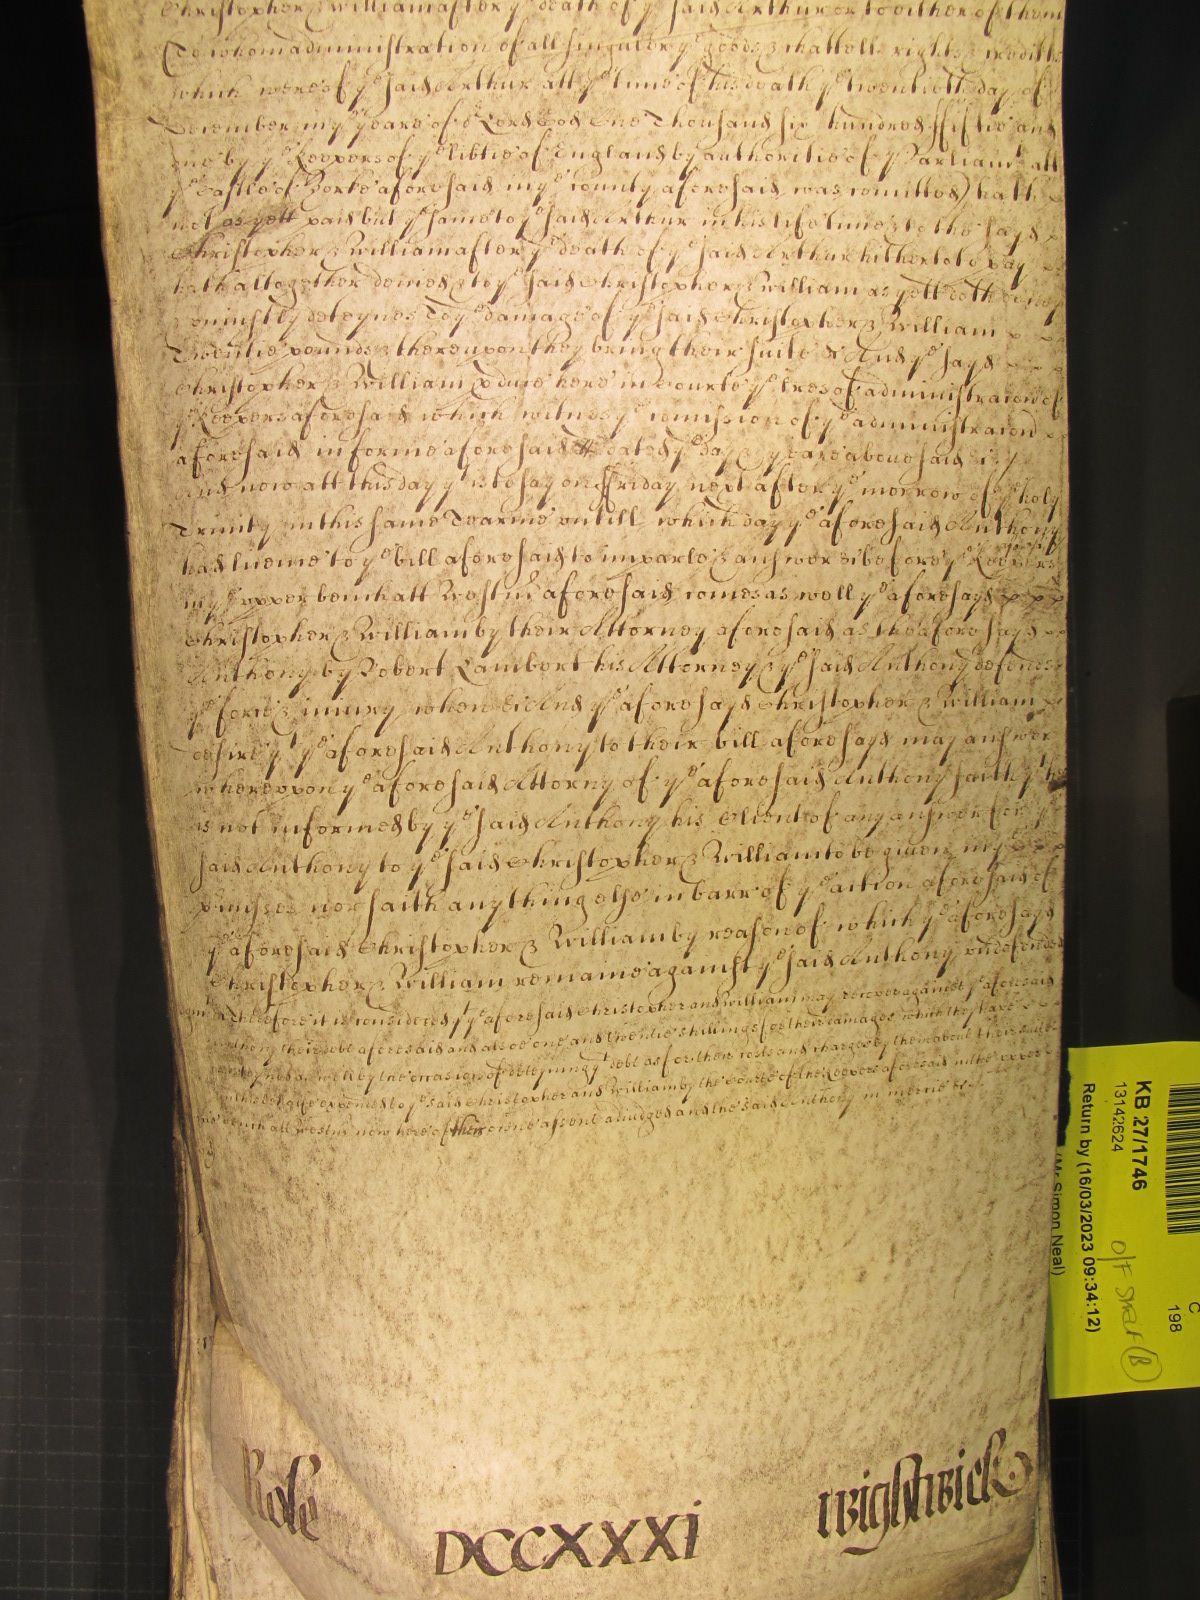 Christopher & William after ye death of ye said Arthur or to either of them
(To whom administration of all & singuler ye goods & chattells rights & creditts
which were of ye said Arthur att ye time of his death ye twentieth day of
December in ye yeare of or Lord God One Thousand six hundred ffiftie and
one by ye Keepers of ye libtie of England by authoritie of Parliamt att
ye Castle of Yorke aforesaid in ye county aforesaid was comitted) hath
not as yett paid but ye same to ye said Arthur in his life time & to the sayd
Christopher & William after ye death of ye said Arthur hitherto to pay
hath altogether denied & to ye said Christopher & William as yett doth deny
& uniustly deteynes To ye damage of ye said Christopher & William
Twentie pounds & thereupon they bring their suite &c And ye sayd
Christopher & William pduce here in Courte ye lres of administracion of
ye Keepers aforesaid which witness ye comission of ye administracion
aforesaid in forme aforesaid dated ye day & yeare aboue said &c
And now att this day yt is to say on ffriday next after ye morrow of ye holy
Trinity in this same Tearme untill which day ye aforesaid Anthony
had licence to ye bill aforesaid to imparle & answer &c before ye Keepers
in ye upper bench att Westmr aforesaid comes as well ye aforesayd
Christopher & William by their Attorney aforesaid as the aforesayd
Anthony by Robert Lambert his Attorney & ye said Anthony defends
ye force & iniury when &c And ye aforesayd Christopher & William
desire yt ye aforesaid Anthony to their bill aforesayd may answer
whereupon ye aforesaid Attorny of ye aforesaid Anthony saith yt he
is not informed by ye said Anthony his Client of any answer for ye
said Anthony to ye said Christopher & William to be given in ye
pmisses nor saith anything else in barr of ye action aforesaid of
ye aforesaid Christopher & William by reason of which ye aforesayd
Christopher & William remaine against ye said Anthony undefended
Therefore it is considered yt ye aforesaid Christopher and William may recover against ye aforesaid
Anthony their debt aforesaid and also one and twentie shillings for their damages which they have
susteyned as well by the occasion of deteyning ye debt as for their costs and charges by them about their suite
in this behalfe expended to ye said Christopher and William by the Courte of the Keepers aforesaid in the upper
bench att Westmr now here of their assent adiudged and the said Anthony in mercie &c
Role
DCCXXXI
Wightwick
KB 27/1746
13142624
Return by (16/03/2023 09:34:12)
(Mr Simon Neal)
C
198
O/F
(B)